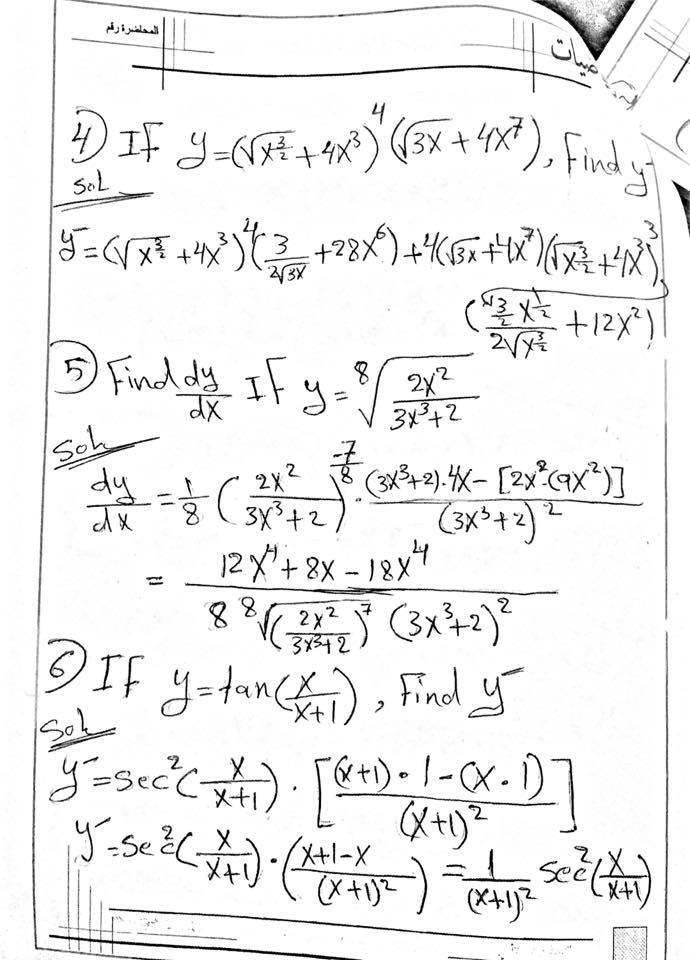 المحاضرة رقم
④ If y=(√x^(3/2) + 4x³)⁴ (√3x + 4x⁷), Find y⁻
Sol
y⁻=(√x^(3/2) + 4x³)⁴ (3/(2√3x) + 28x⁶) + 4(√3x + 4x⁷)(√x^(3/2) + 4x³)³
((3/2 x^(1/2))/(2√x^(3/2)) + 12x²)
⑤ Find dy/dx If y = ⁸√(2x²/(3x³+2))
Sol
dy/dx = 1/8 (2x²/(3x³+2))^(-7/8) · ((3x³+2)·4x - [2x²·(9x²)])/(3x³+2)²
= (12x⁴ + 8x - 18x⁴)/(8 ⁸√(2x²/(3x³+2))⁷ (3x³+2)²)
⑥ If y=tan(x/(x+1)), Find y⁻
Sol
y⁻=sec²(x/(x+1)) · [((x+1)·1-(x·1))/(x+1)²]
y⁻=sec²(x/(x+1))·((x+1-x)/(x+1)²) = 1/(x+1)² sec²(x/(x+1))